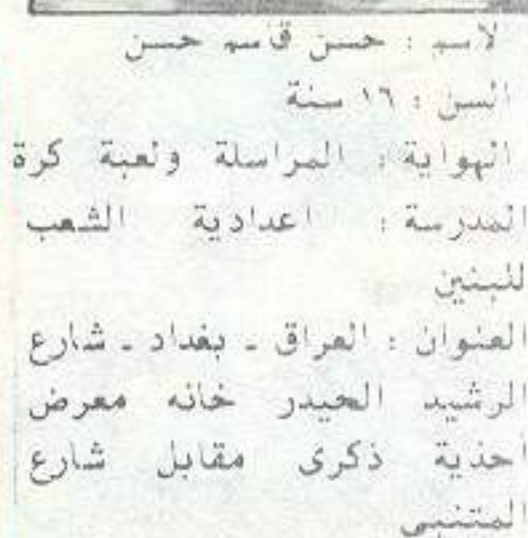 لاسم : حسن قاسم حسن
السن : ١٦ سنة
الهواية : المراسلة ولعبة كرة
المدرسة : اعدادية الشعب
للبنين
العنوان : العراق ـ بغداد ـ شارع
الرشيد الحيدر خانه معرض
احذية ذكرى مقابل شارع
المتنبي